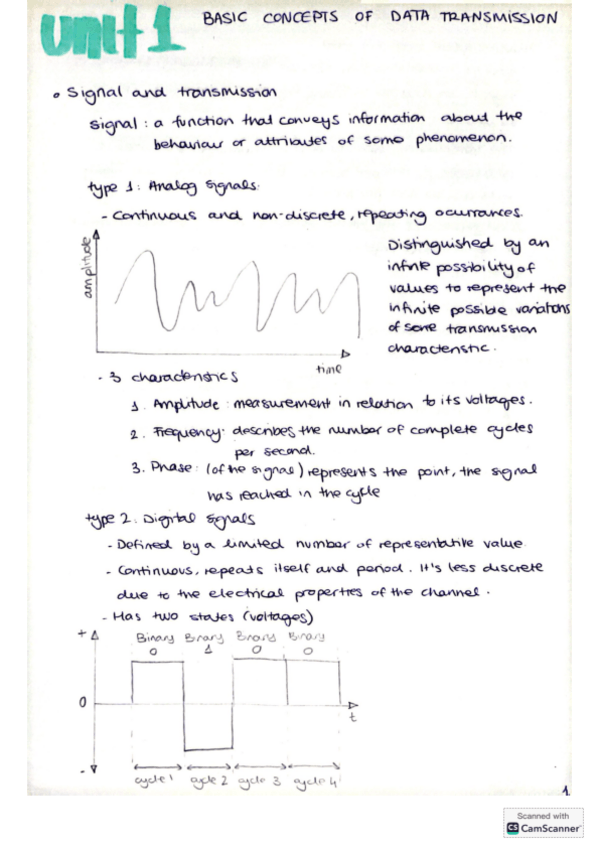 unit 1 BASIC CONCEPTS OF DATA TRANSMISSION
Signal and transmission
Signal: a function that conveys information about the
behaviour or attributes of some phenomenon.
type 1: Analog Signals.
- Continuous and non-discrete, repeating ocurrances.
amplitude
Distinguished by an
infinite possibility of
values to represent the
infinite possible variations
of some transmission
characteristic.
time
- 3 characteristics
1. Amplitude: measurement in relation to its voltages.
2. Frequency: describes the number of complete cycles
per second.
3. Phase: (of the signal) represents the point, the signal
has reached in the cycle
type 2: Digital Signals
- Defined by a limited number of representative value.
- Continuous, repeats itself and period. It's less discrete
due to the electrical properties of the channel.
- Has two states (voltages)
+ Binary Binary Binary Binary
0 1 0 0
0
t
-
cycle 1 cycle 2 cycle 3 cycle 4
1
Scanned with
CS CamScanner